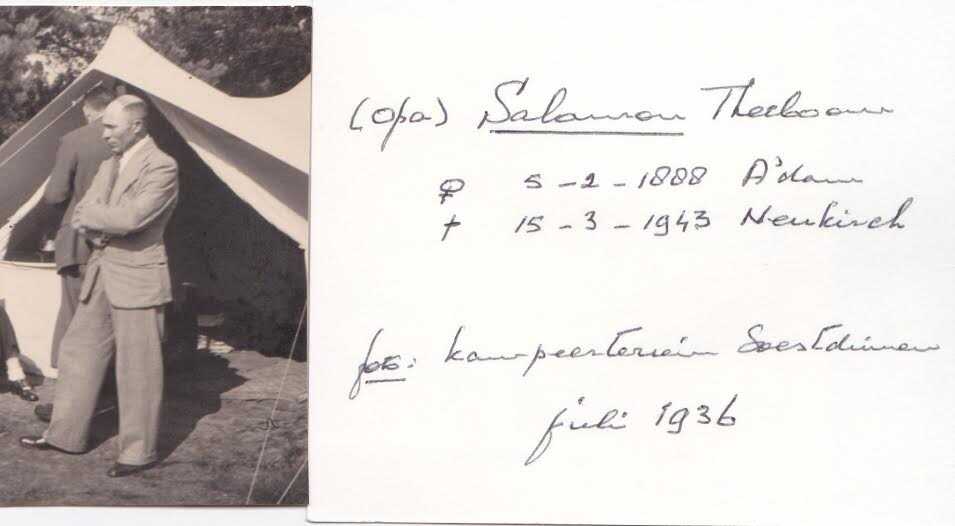 (Opa) Salamon Theeboom
♀ 5-2-1888 A'dam
† 15-3-1943 Neukirch
foto: kampeerterrein Soestduinen
juli 1936